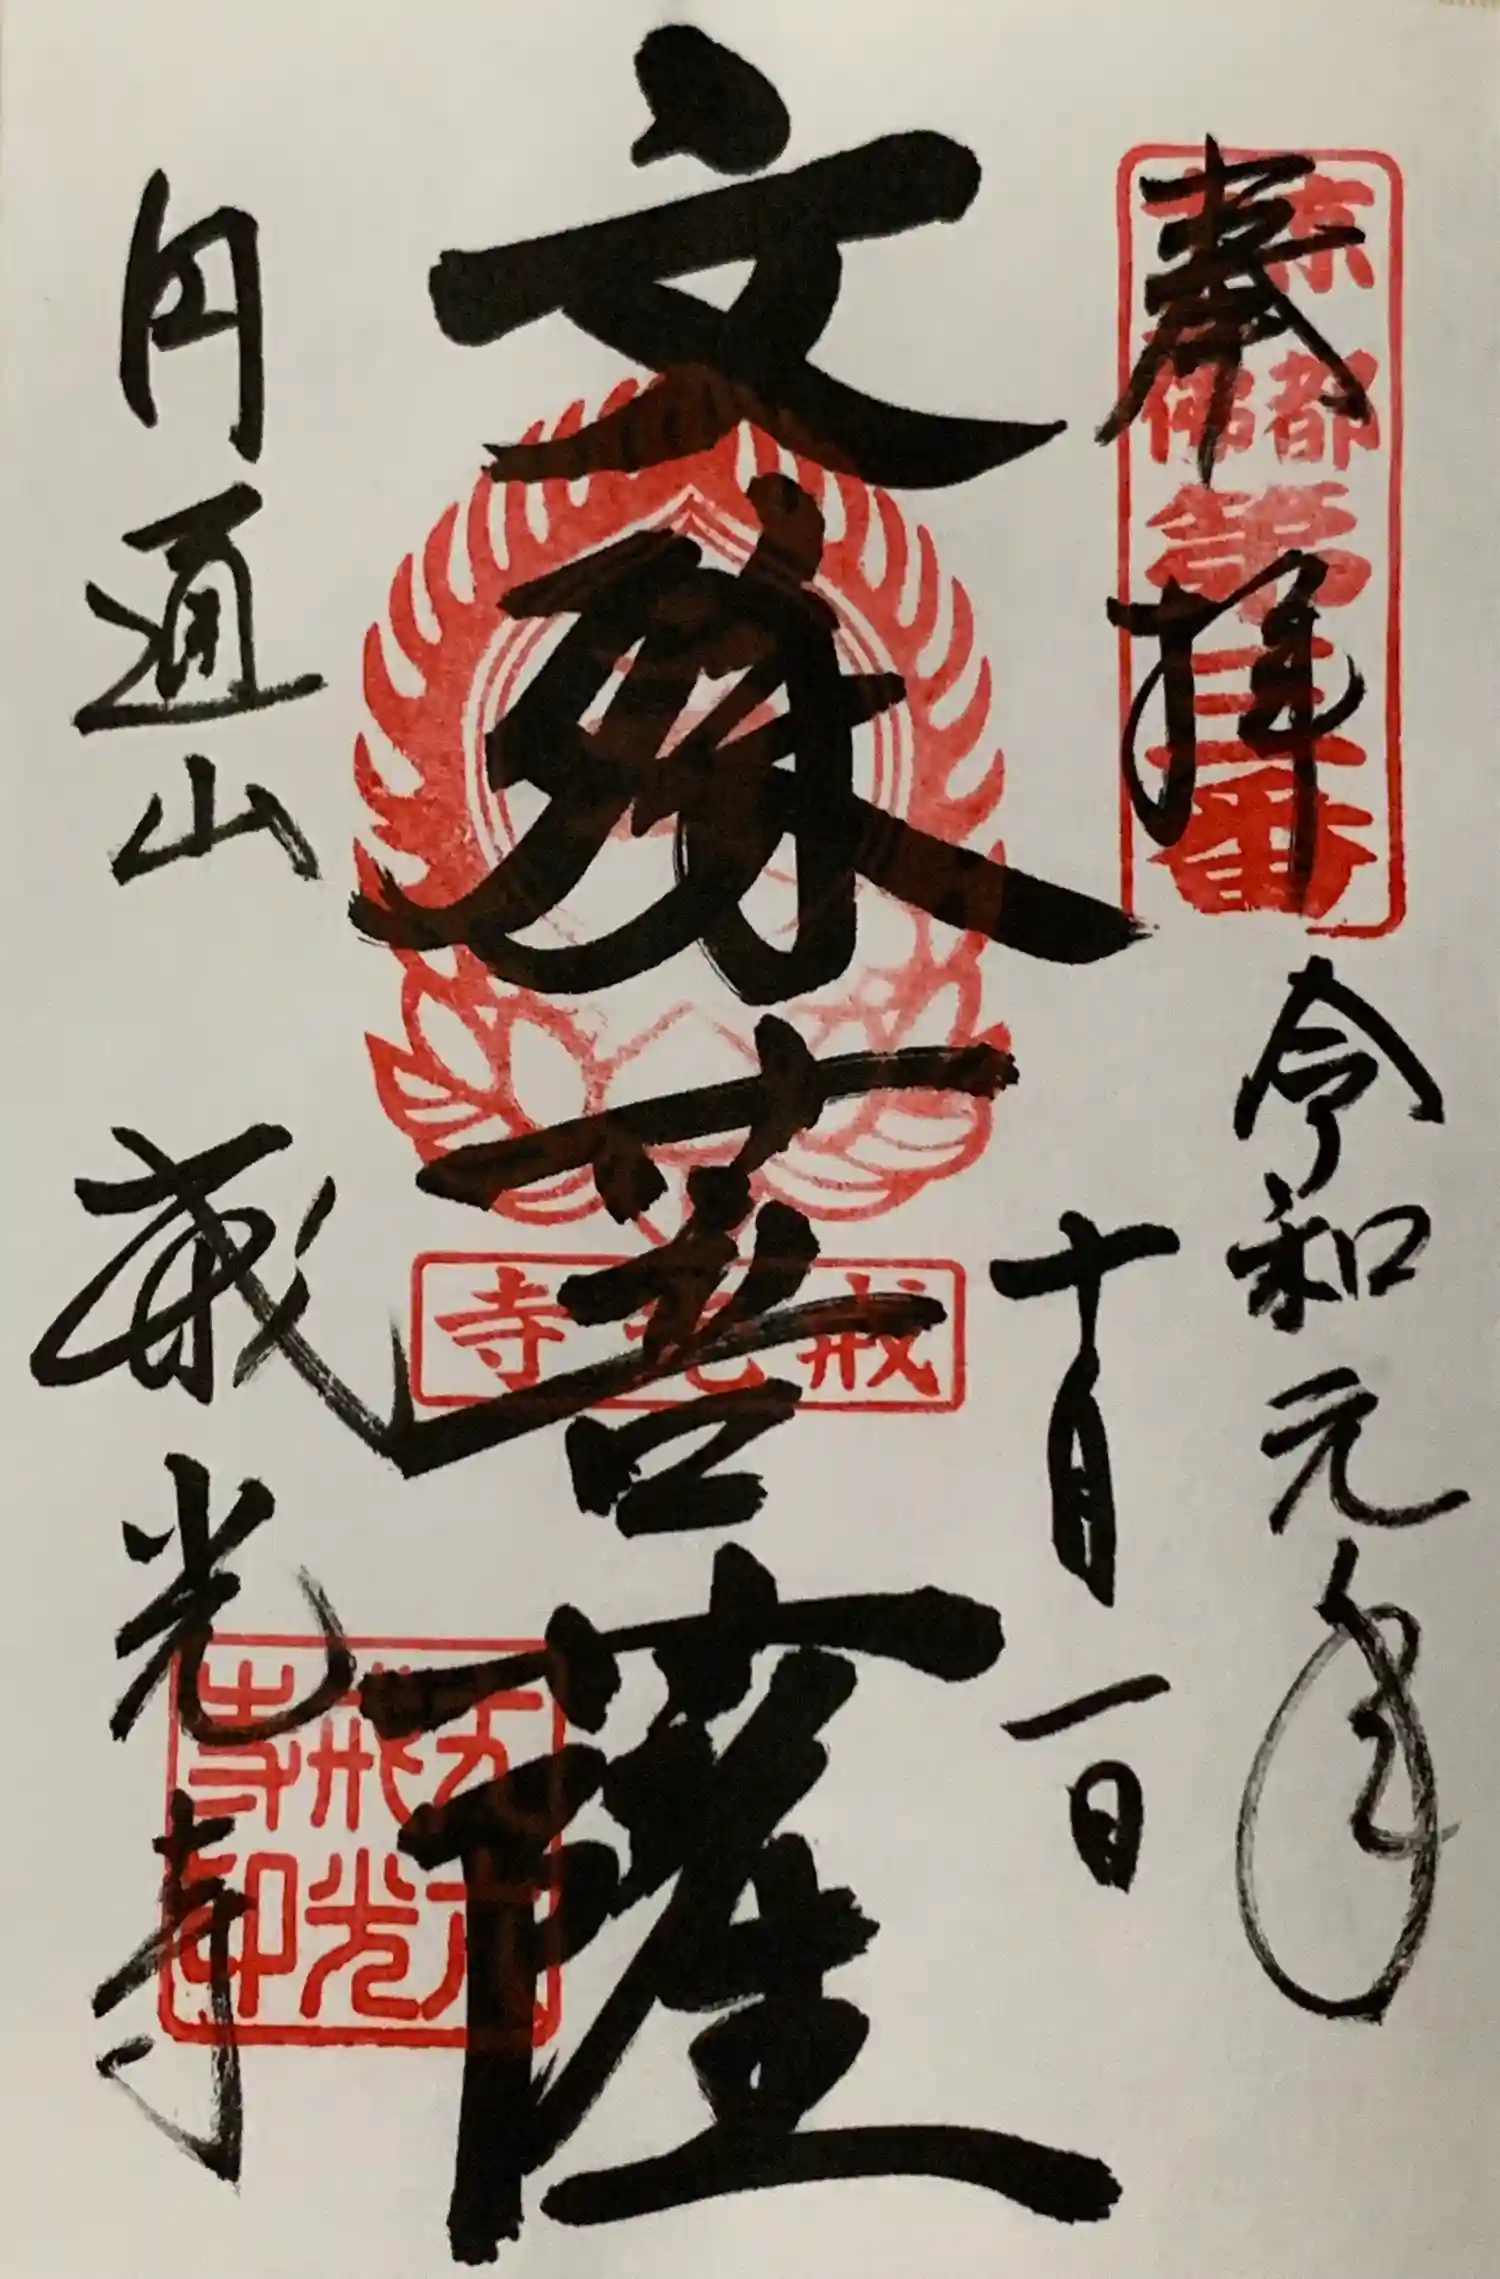 奉拝
京都
十三佛
三番
令和元年
十月一日
文殊菩薩
戒光寺
円通山
戒光寺
丈六
戒光
寺印